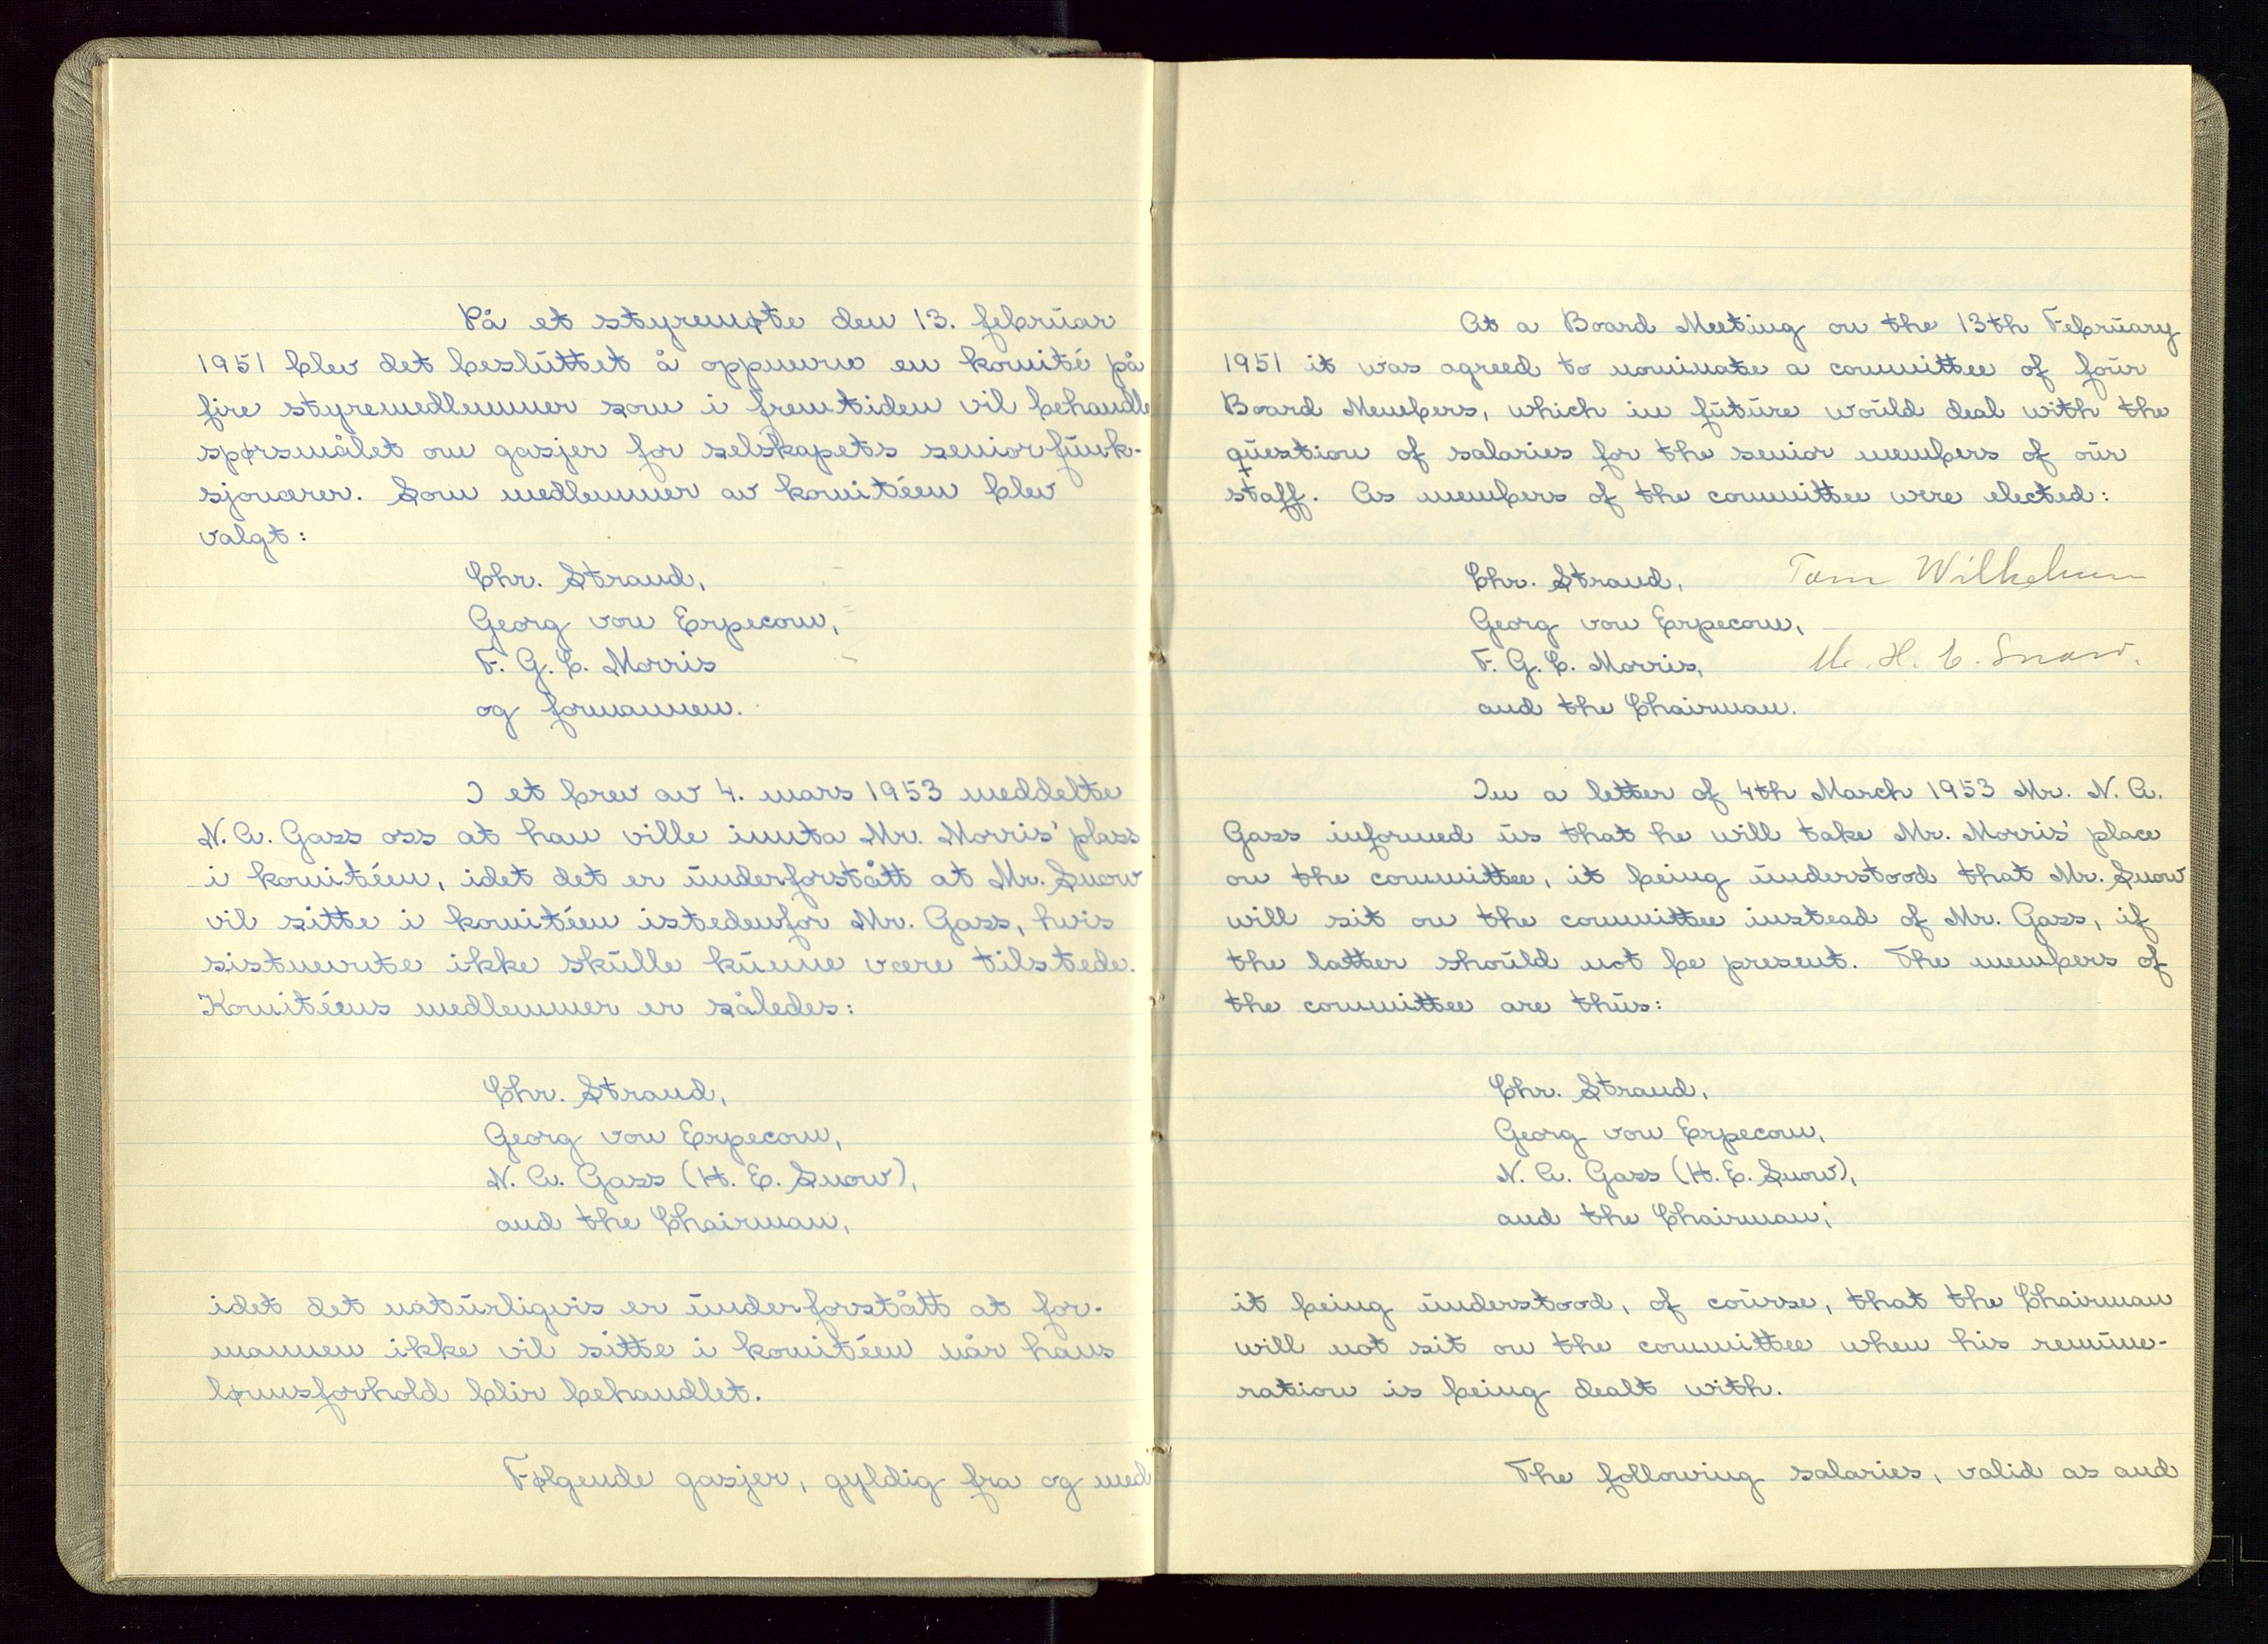 På et styremøte den 13. februar
1951 blev det besluttet å oppnevne en komité på
fire styremedlemmer som i fremtiden vil behandle
spørsmålet om gasjer for selskapets seniorfunk-
sjonærer. Som medlemmer av komitéen blev
valgt:
Chr. Strand,
Georg von Erpecom,
F. G. C. Morris
og formannen.
I et brev av 4. mars 1953 meddelte
N. A. Gass oss at han ville innta Mr. Morris' plass
i komitéen, idet det er underforstått at Mr. Snow
vil sitte i komitéen istedenfor Mr. Gass, hvis
sistnevnte ikke skulle kunne være tilstede.
Komitéens medlemmer er således:
Chr. Strand,
Georg von Erpecom,
N. A. Gass (H. E. Snow),
and the Chairman,
idet det naturligvis er underforstått at for-
mannen ikke vil sitte i komitéen når hans
lønnsforhold blir behandlet.
Følgende gasjer, gyldig fra og med
At a Board Meeting on the 13th February
1951 it was agreed to nominate a committee of four
Board Members, which in future would deal with the
question of salaries for the senior members of our
staff. As members of the committee were elected:
Chr. Strand, Tom Wilhelmsen
Georg von Erpecom,
F. G. C. Morris, H. E. Snow.
and the Chairman.
In a letter of 4th March 1953 Mr. N. A.
Gass informed us that he will take Mr. Morris' place
on the committee, it being understood that Mr. Snow
will sit on the committee instead of Mr. Gass, if
the latter should not be present. The members of
the committee are thus:
Chr. Strand,
Georg von Erpecom,
N. A. Gass (H. E. Snow),
and the Chairman;
it being understood, of course, that the Chairman
will not sit on the committee when his remune-
ration is being dealt with.
The following salaries, valid as and